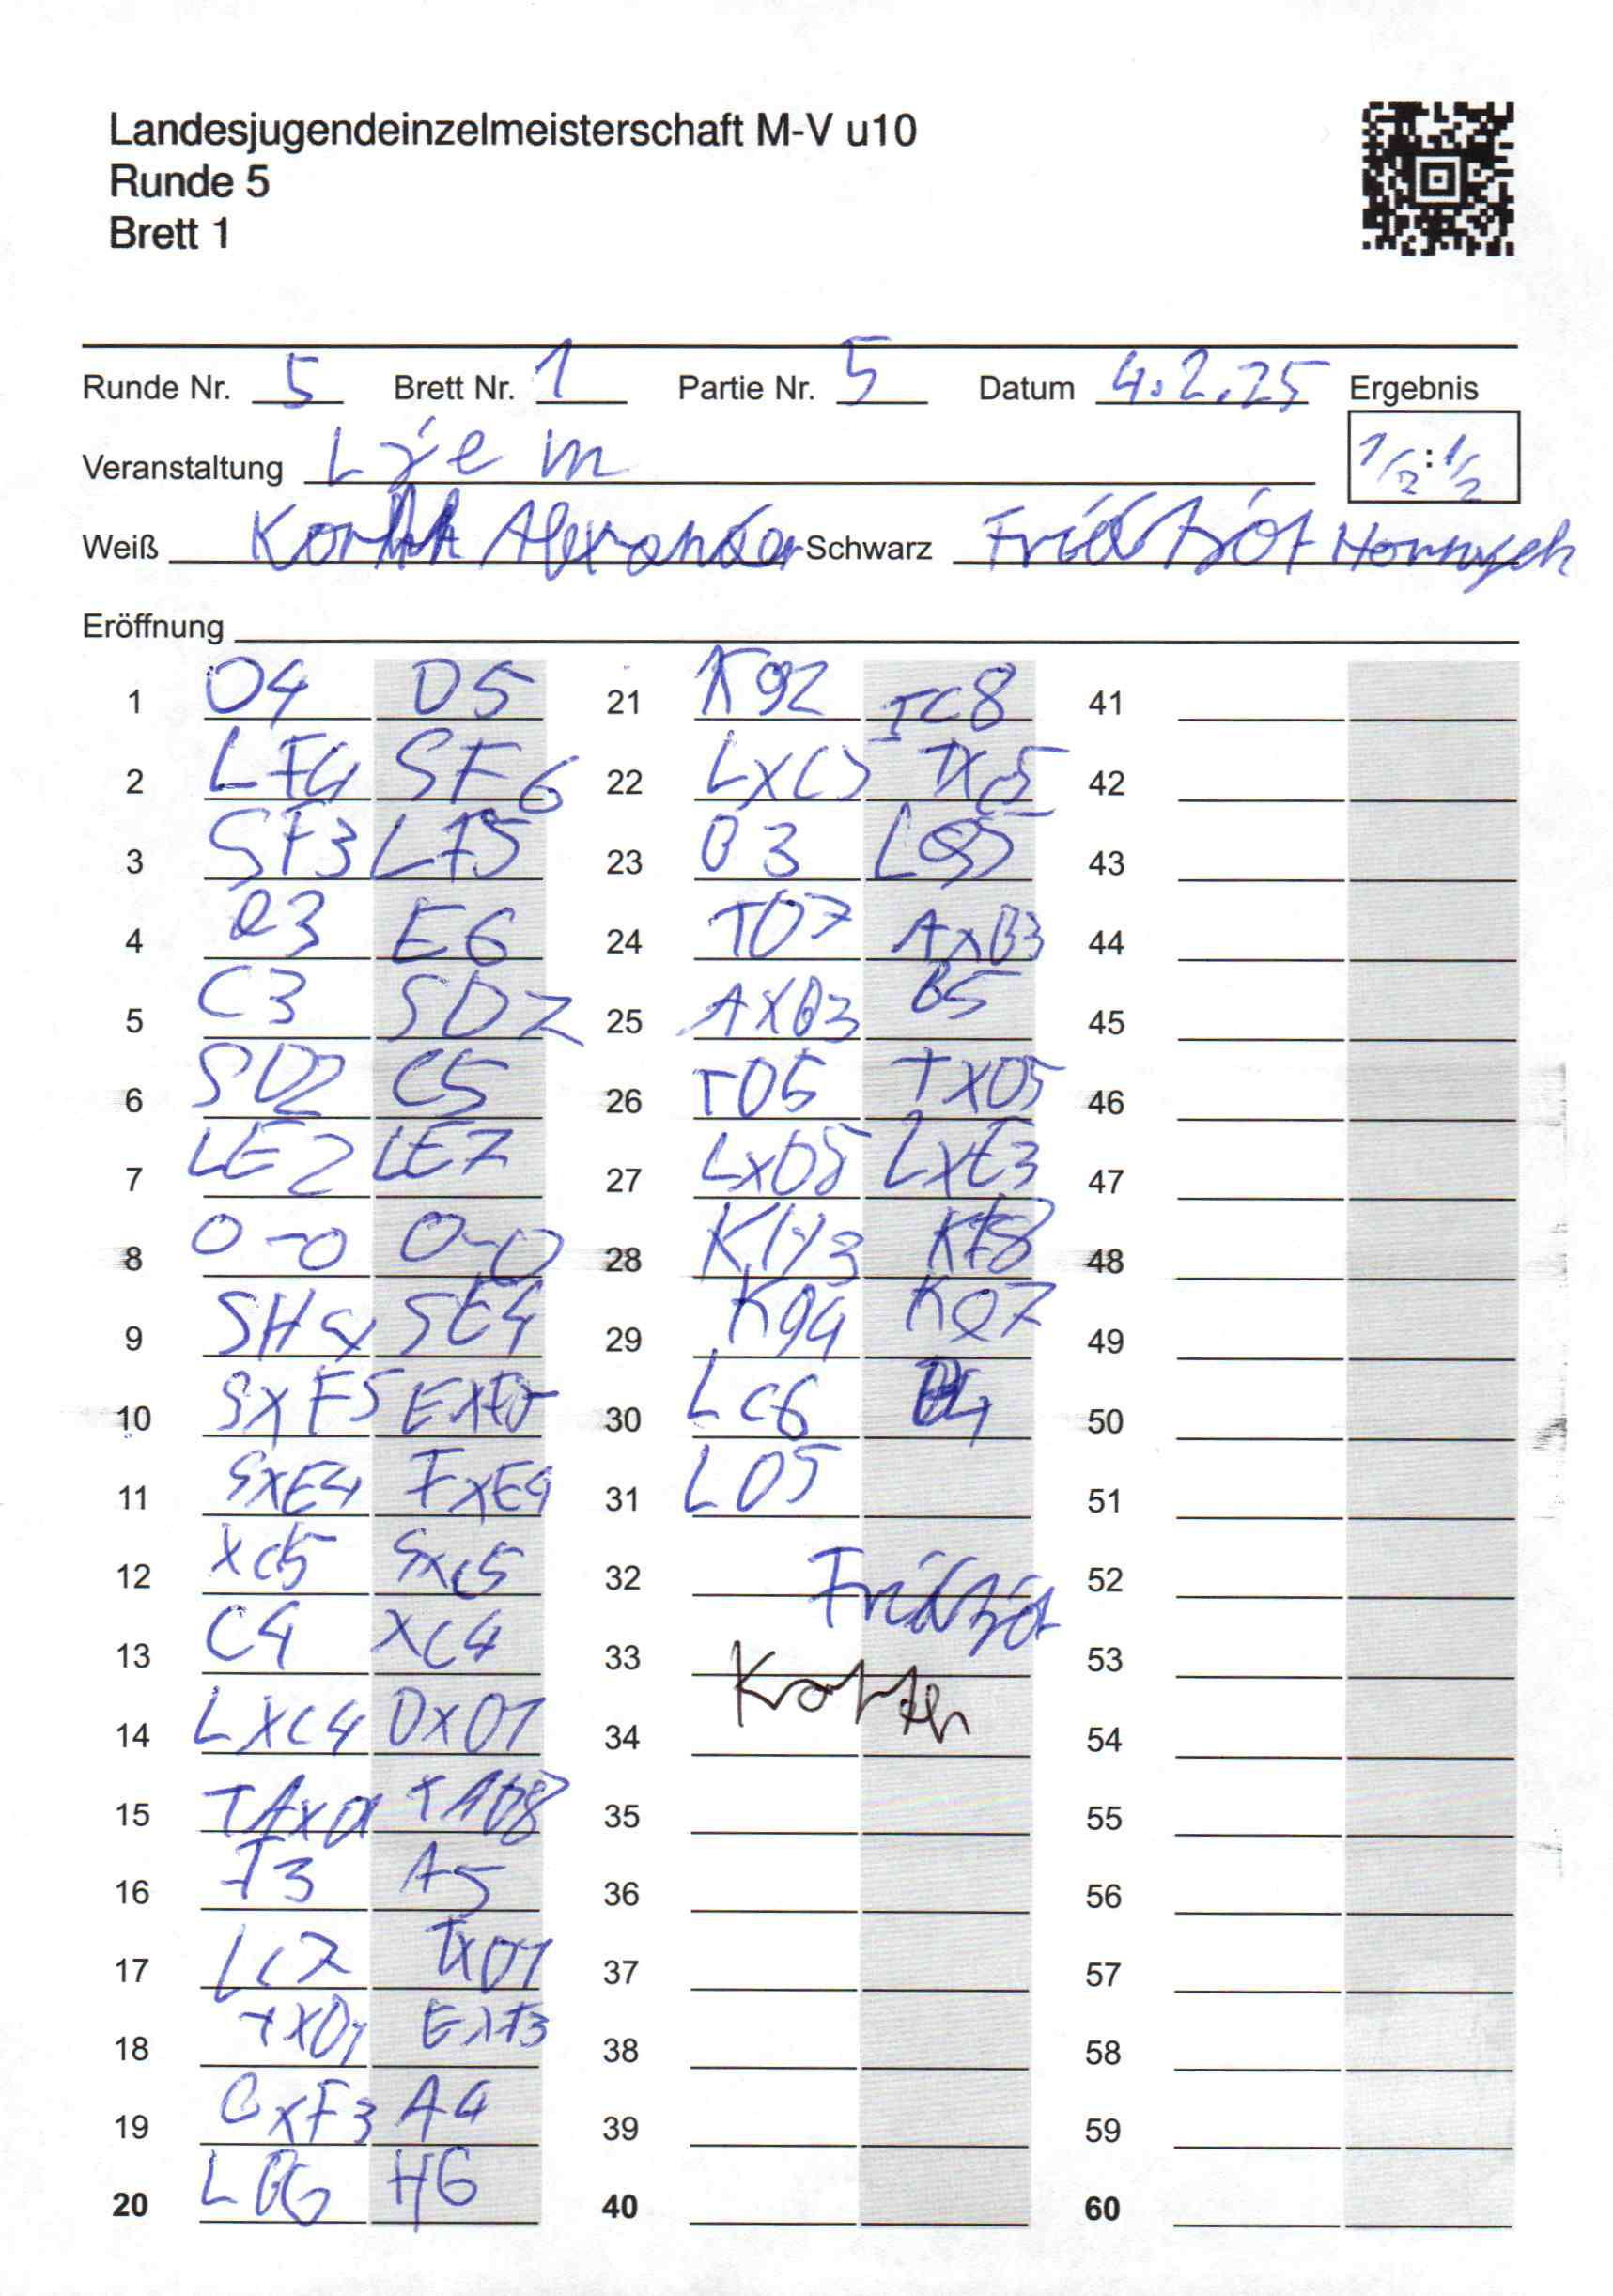 Landesjugendeinzelmeisterschaft M-V u10
Runde 5
Brett 1
Runde Nr. 5 Brett Nr. 1 Partie Nr. 5 Datum 4.2.25 Ergebnis
Veranstaltung Ljem 1/2 : 1/2
Weiß Alexander Schwarz
Eröffnung
1 D4 D5 21 Kg2 TC8 41
2 LF4 SF6 22 LXC5 TXc5 42
3 SF3 LF5 23 B3 43
4 e3 E6 24 TD7 AxB3 44
5 C3 SD7 25 AXB3 B5 45
6 SD2 C5 26 TD5 TXD5 46
7 LE2 LE7 27 LxD5 LXE3 47
8 0-0 0-0 28 KH3 KF8 48
9 SH4 SE4 29 Kg4 Ke7 49
10 SXF5 EXF5 30 Lc6 B4 50
11 SXE4 FXE4 31 LD5 51
12 Xc5 Sxc5 32 52
13 C4 XC4 33 53
14 LXC4 DXD1 34 54
15 TAXD1 TAD8 35 55
16 F3 A5 36 56
17 Lc7 TXD1 37 57
18 TXD1 EXF3 38 58
19 GXF3 A4 39 59
20 LB6 H6 40 60